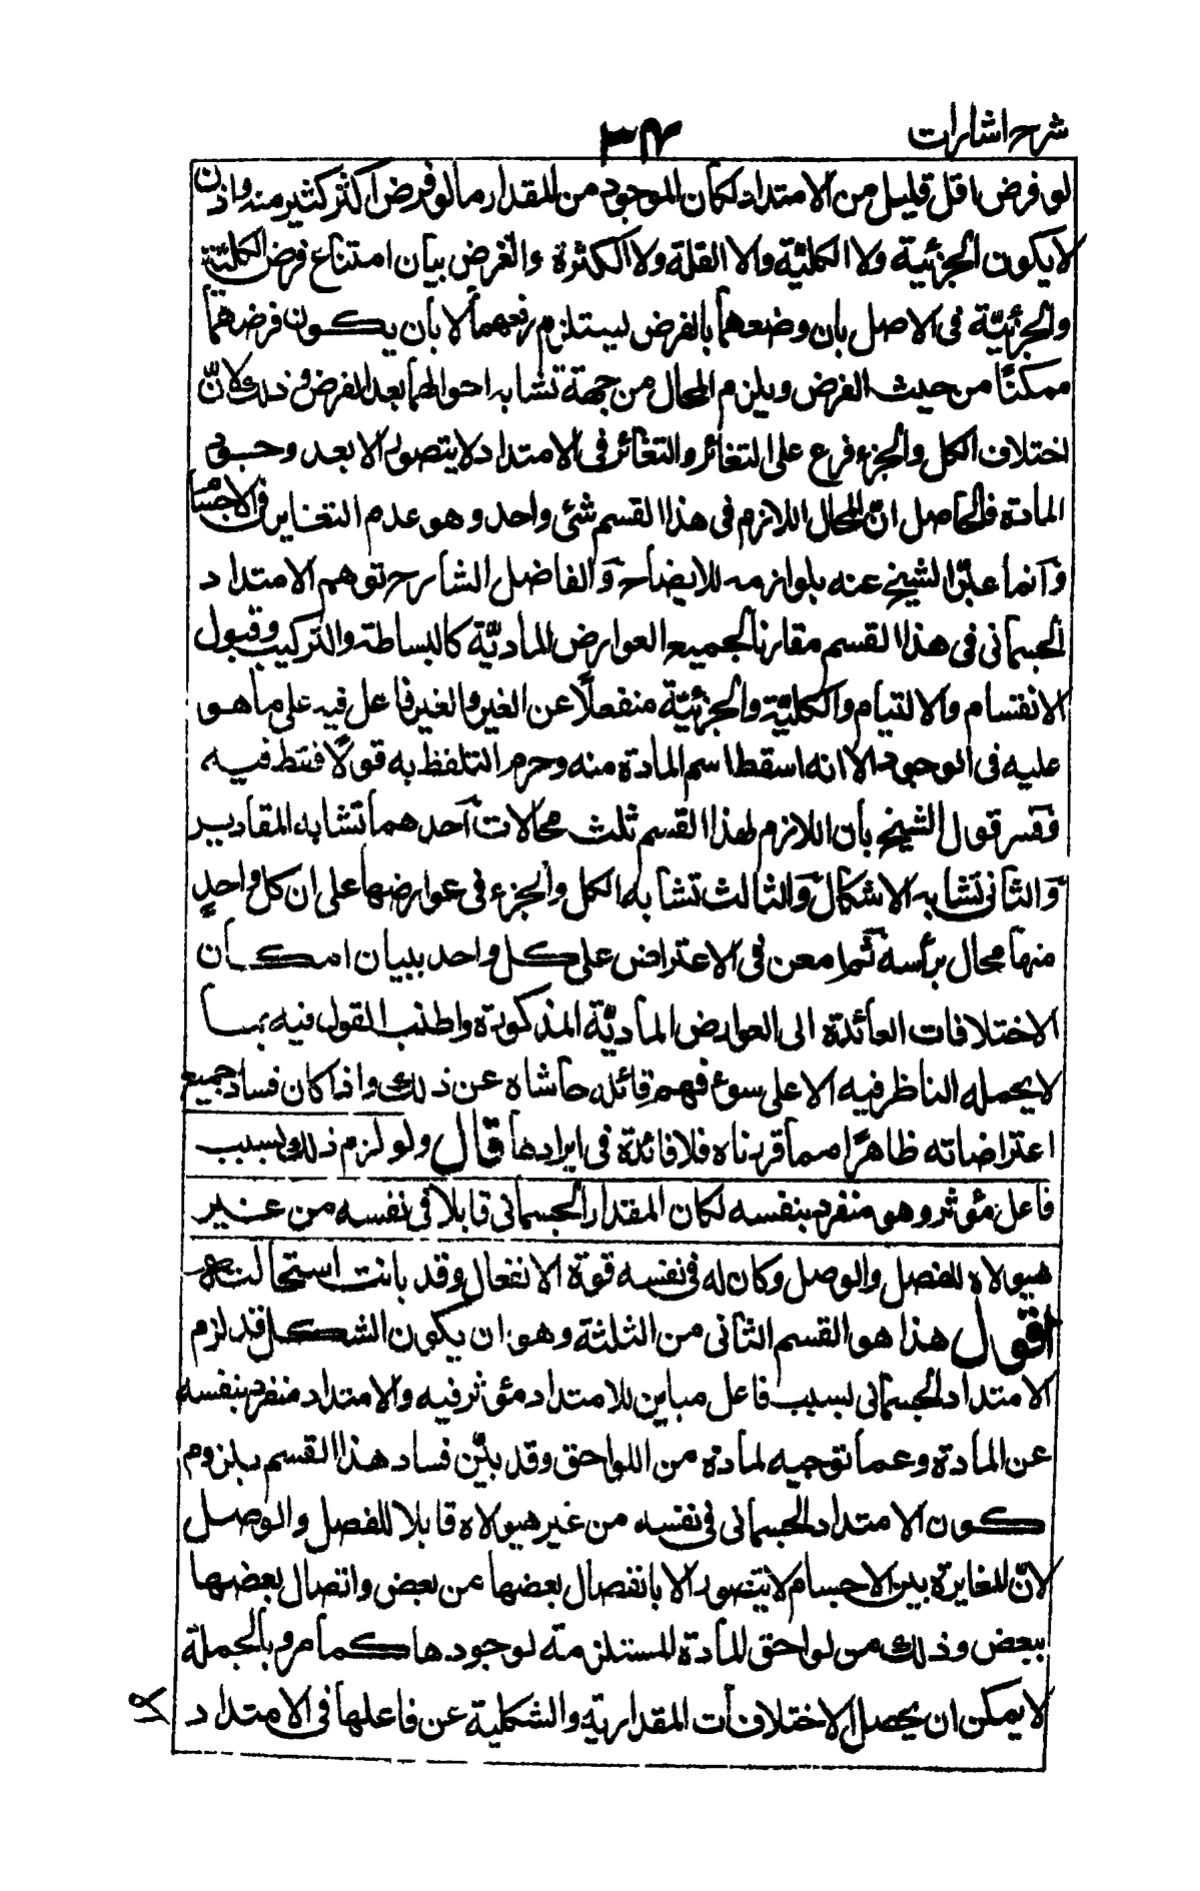 شرح اشارات
٣٤
لو فرض اقل قليل من الامتداد لكان الموجود من المقدار ما لو فرض اكثر كثير منه واذن
لا يكون الجزئية ولا الكلية ولا القلة ولا الكثرة والغرض بيان امتناع فرض الكلية
والجزئيّة فى الاصل بان وضعهما بالفرض ليستلزم رفعهما لا بان يكون فرضهما
ممكنًا من حيث الفرض ويلزم المحال من جهة تشابه احوالهما بعد الفرض و ذلك لانّ
اختلاف الكل والجزء فرع على التغائر والتغائر فى الامتداد لا يتصور الا بعد وجود
المادة فالحاصل انّ المحال اللازم فى هذا القسم شئ واحد وهو عدم التغاير فى الاجسام
وانما عبّر الشيخ عنه بلوازمه للايضاح والفاضل الشارح توهم الامتداد
الجسمانى فى هذا القسم مقارنا لجميع العوارض الماديّة كالبساطة والتركيب وقبول
الانقسام والالتيام والكليّة والجزئيّة منفعلًا عن الغير والغير فاعل فيه على ما هو
عليه فى الوجود الا انه اسقط اسم المادة منه وحرم التلفظ به قولًا فقط فيه
وفسر قول الشيخ بان اللازم لهذا القسم ثلث محالات احدهما تشابه المقادير
والثانى تشابه الاشكال والثالث تشابه الكل والجزء فى عوارضها على ان كل واحدٍ
منها محال برأسه ثم امعن فى الاعتراض على كل واحد ببيان امكان
الاختلافات العائدة الى العوارض الماديّة المذكورة واطنب القول فيه بما
لا يحمله الناظر فيه الا على سوء فهم قائله حاشاه عن ذلك واذا كان فساد جميع
اعتراضاته ظاهرًا مما قررناه فلا فائدة فى ايرادها قال ولو لزم ذلك بسبب
فاعل مؤثر وهو منفرد بنفسه لكان المقدار الجسمانى قابلا فى نفسه من غير
هيولاه للفصل والوصل وكان له فى نفسه قوة الانفعال وقد بانت استحالته
اقول هذا هو القسم الثانى من الثلثة وهو ان يكون الشكل قد لزم
الامتداد الجسمانى بسبب فاعل مباين للامتداد مؤثر فيه والامتداد منفرد بنفسه
عن المادة وعما توجبه لمادة من اللواحق وقد بيّن فساد هذا القسم بلزوم
كون الامتداد الجسمانى فى نفسه من غير هيولاه قابلا للفصل والوصل
لانّ المغايرة بين الاجسام لا يتصور الا بانفصال بعضها عن بعض واتصال بعضها
ببعض وذلك من لواحق المادة المستلزمة لوجودها كما مر وبالجملة
لا يمكن ان يحصل الاختلافات المقدارية والشكلية عن فاعلها فى الامتداد